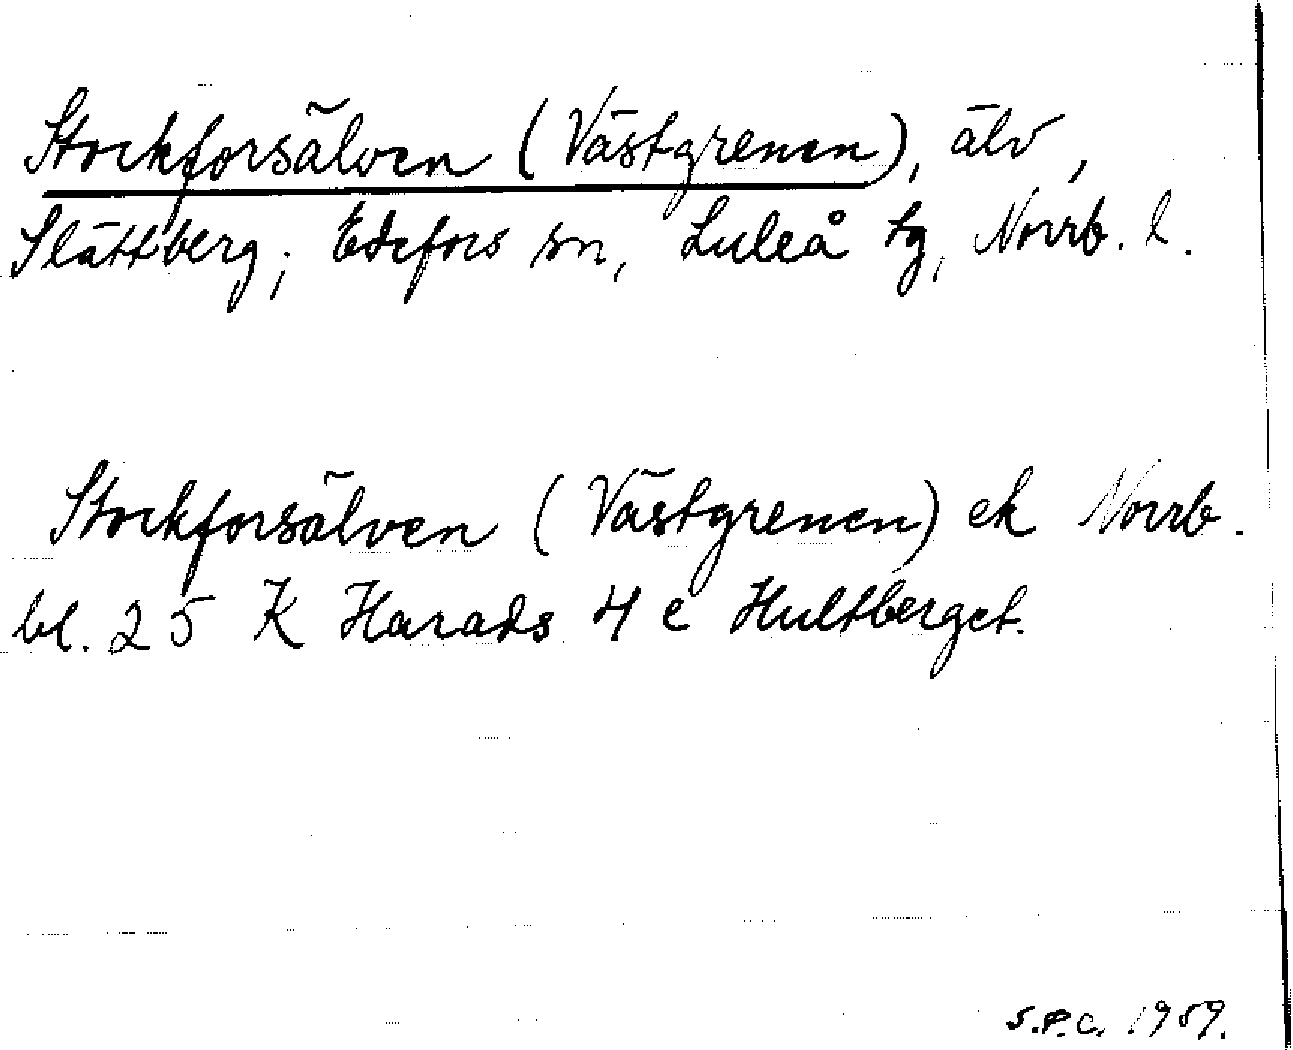 Stockforsälven (Västgrenen), älv,
Slättberg; Edefors sn, Luleå tg, Norrb. l.
Stockforsälven (Västgrenen) ek Norrb.
bl. 25 K Harads 4 e Hultberget.
S.P.C. 1959.